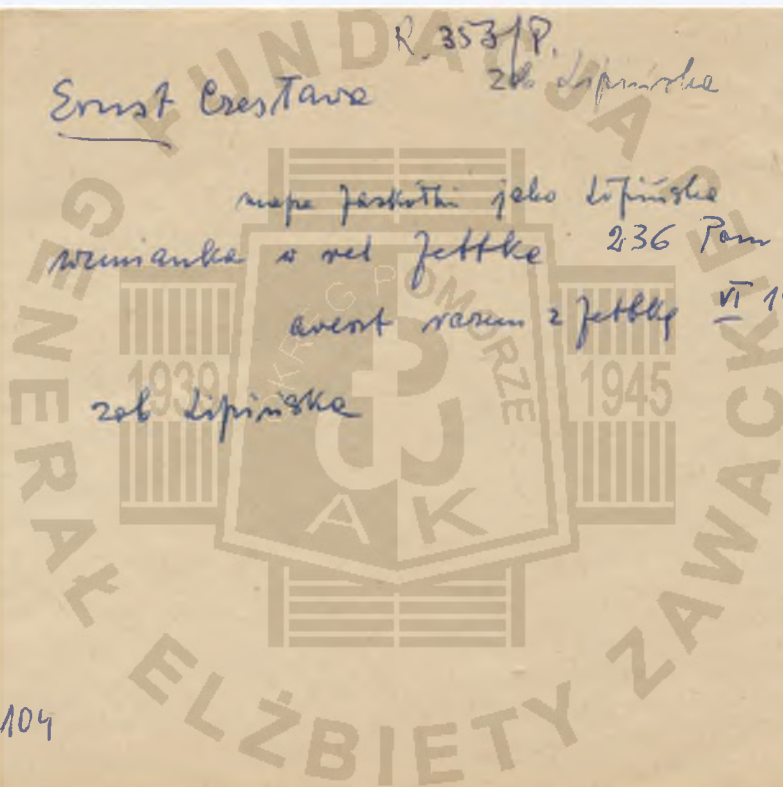 R. 353/P.
zob Lipińska
Ernst Czesława
mapa Jaskółki jako Lipińska
wzmianka w rel Jettke 236 Pom
areszt razem z Jettką VI 1
zob Lipińska
104
FUNDACJA GENERAŁ ELŻBIETY ZAWACKIEJ
OKRĘG POMORZE
1939 1945
AK